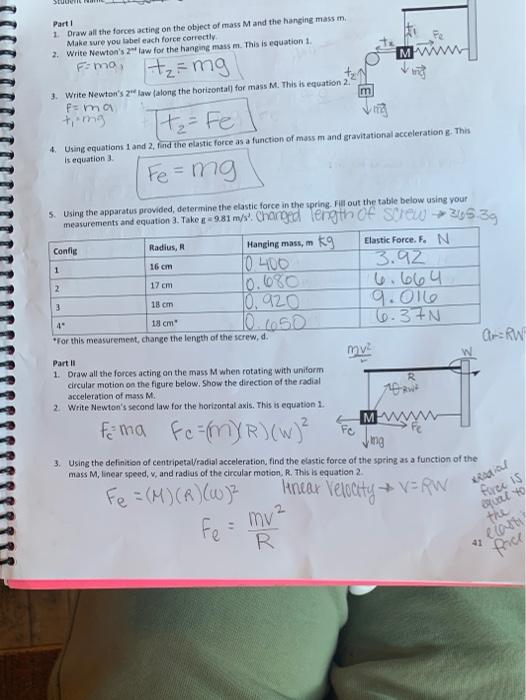 Part I
1. Draw all the forces acting on the object of mass M and the hanging mass m.
Make sure you label each force correctly.
2. Write Newton's 2nd law for the hanging mass m. This is equation 1.
F=ma,
t₂=mg
3. Write Newton's 2nd law (along the horizontal) for mass M. This is equation 2.
F=ma
t₁=mg
t₂=Fe
t₁
Fe
t₂
M
mg
t₂
m
mg
4. Using equations 1 and 2, find the elastic force as a function of mass m and gravitational acceleration g. This
is equation 3.
Fe=mg
5. Using the apparatus provided, determine the elastic force in the spring. Fill out the table below using your
measurements and equation 3. Take g = 9.81 m/s². Changed length of screw → 365.39
Config Radius, R Hanging mass, m kg Elastic Force. Fe N
1 16 cm 0.400 3.92
2 17 cm 0.680 6.664
3 18 cm 0.920 9.016
4* 18 cm* 0.650 6.37N
*For this measurement, change the length of the screw, d.
Part II
1. Draw all the forces acting on the mass M when rotating with uniform
circular motion on the figure below. Show the direction of the radial
acceleration of mass M.
2. Write Newton's second law for the horizontal axis. This is equation 1.
Fc=ma Fc=(m)(R)(w)²
mv²
W
ar=RW
R
M
Fc
Fe
mg
3. Using the definition of centripetal/radial acceleration, find the elastic force of the spring as a function of the
mass M, linear speed, v, and radius of the circular motion, R. This is equation 2.
Fe=(M)(R)(w)² linear velocity → V=RW
Fe = mv²
R
radial
force is
equal to
the
elastic
force
41